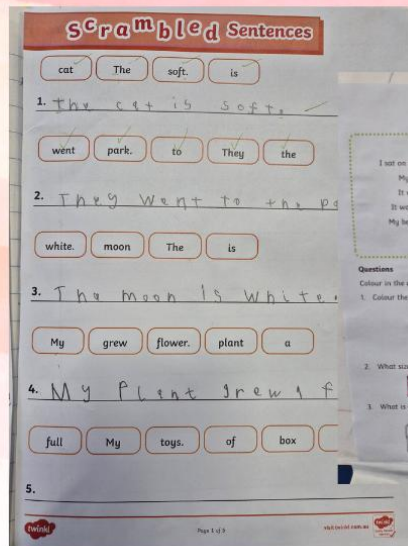 Scrambled Sentences
cat The soft. is
1. The cat is soft.
went park. to They the
2. They went to the pa
white. moon The is
3. The moon is white.
My grew flower. plant a
4. My Plant grew a f
full My toys. of box
5.
twinkl Page 1 of 3 visit twinkl.com.au
I sat on
My
It
It wa
My be
Questions
Colour in the
1. Colour the
2. What siz
3. What is